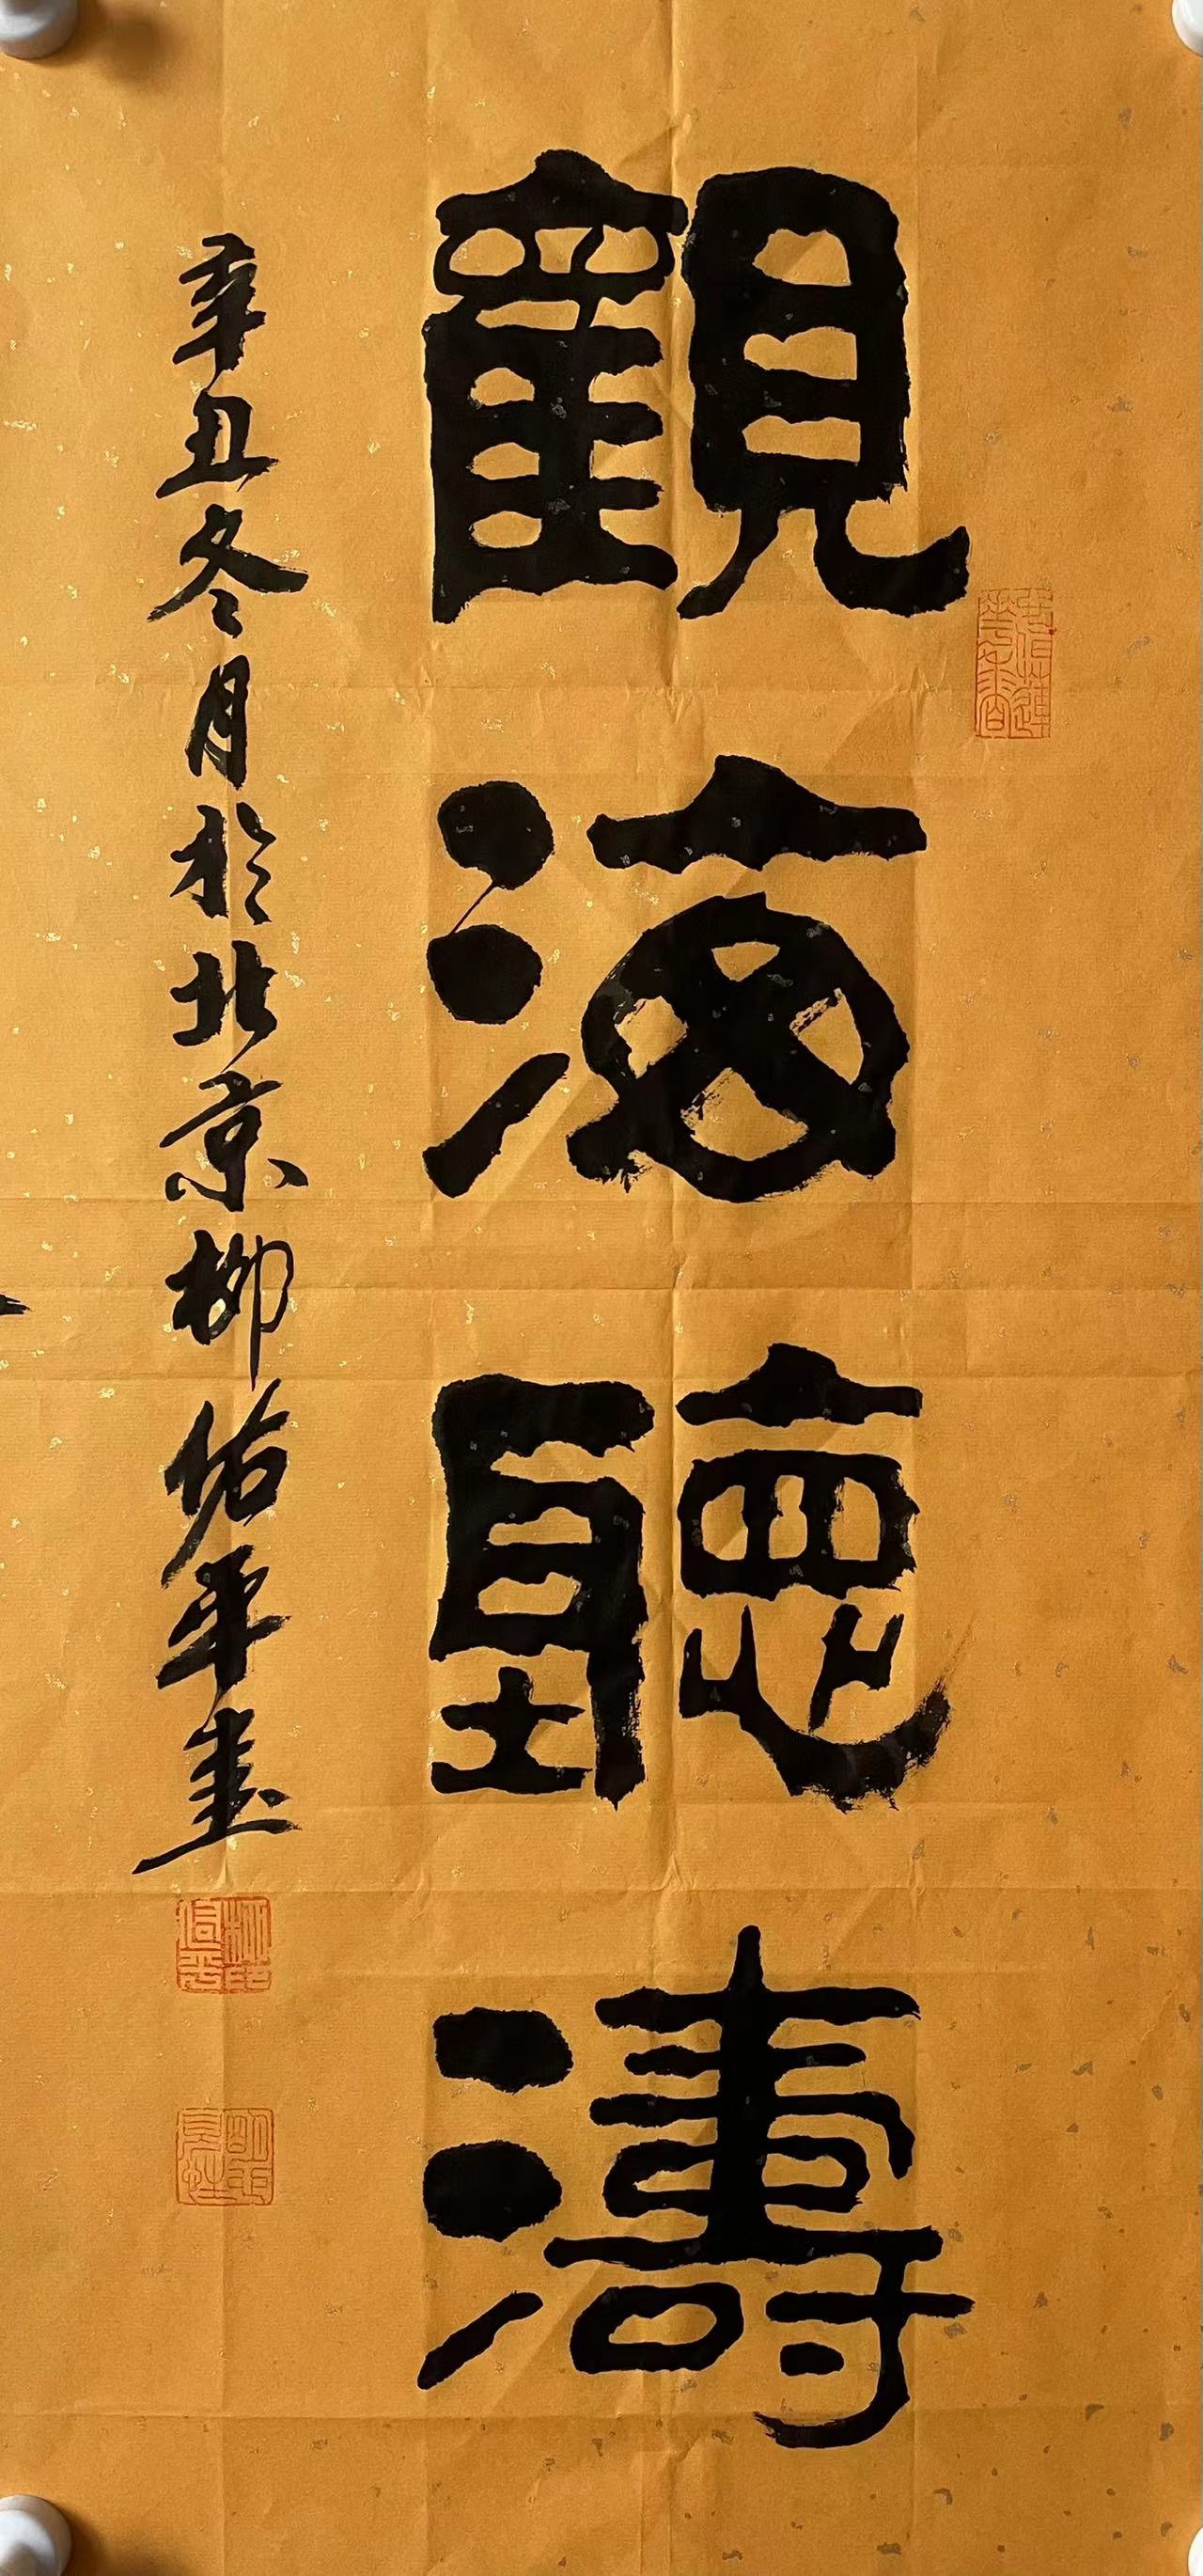 觀海聽濤
辛丑冬月於北京柳佑平書